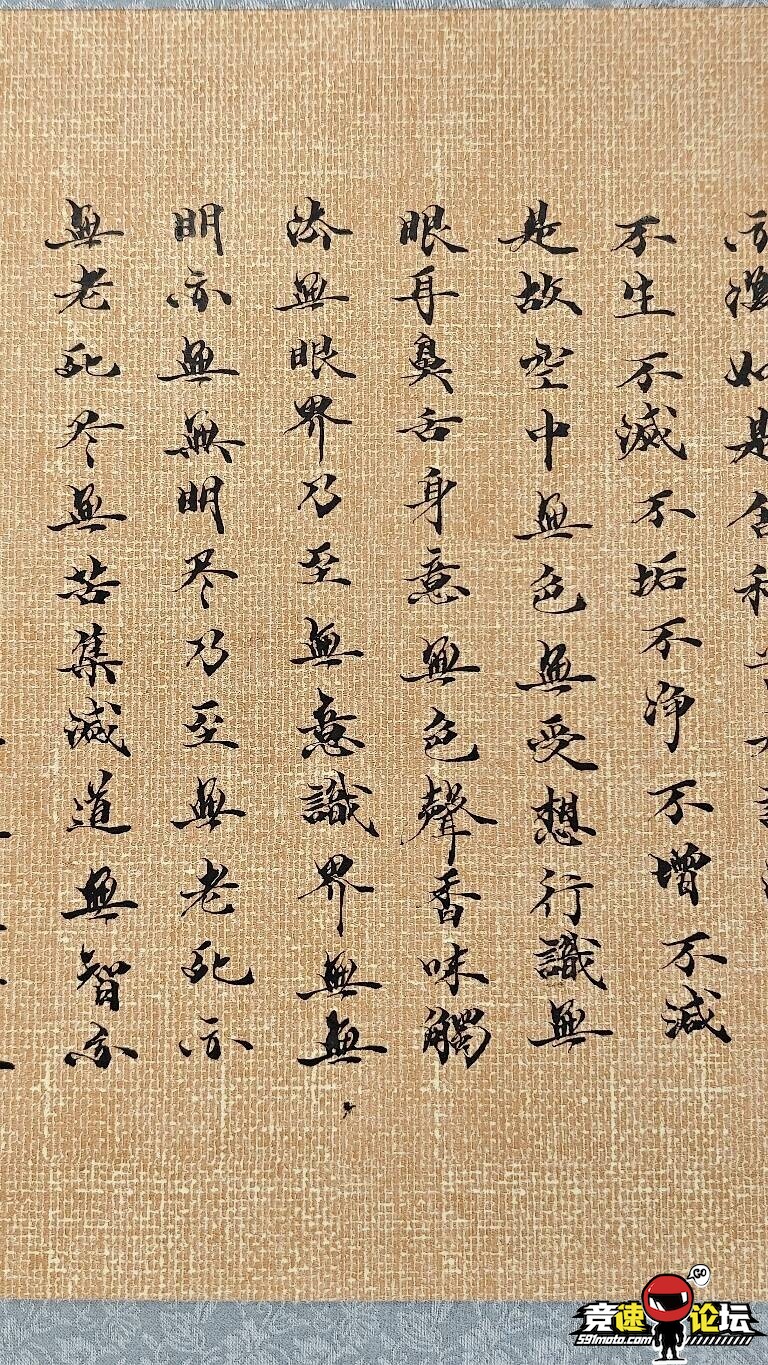 亦復如是舍利
不生不滅不垢不净不增不減
是故空中無色無受想行識無
眼耳鼻舌身意無色聲香味觸
法無眼界乃至無意識界無無
明亦無無明尽乃至無老死亦
無老死尽無苦集滅道無智亦
GO
竞速论坛
591moto.com